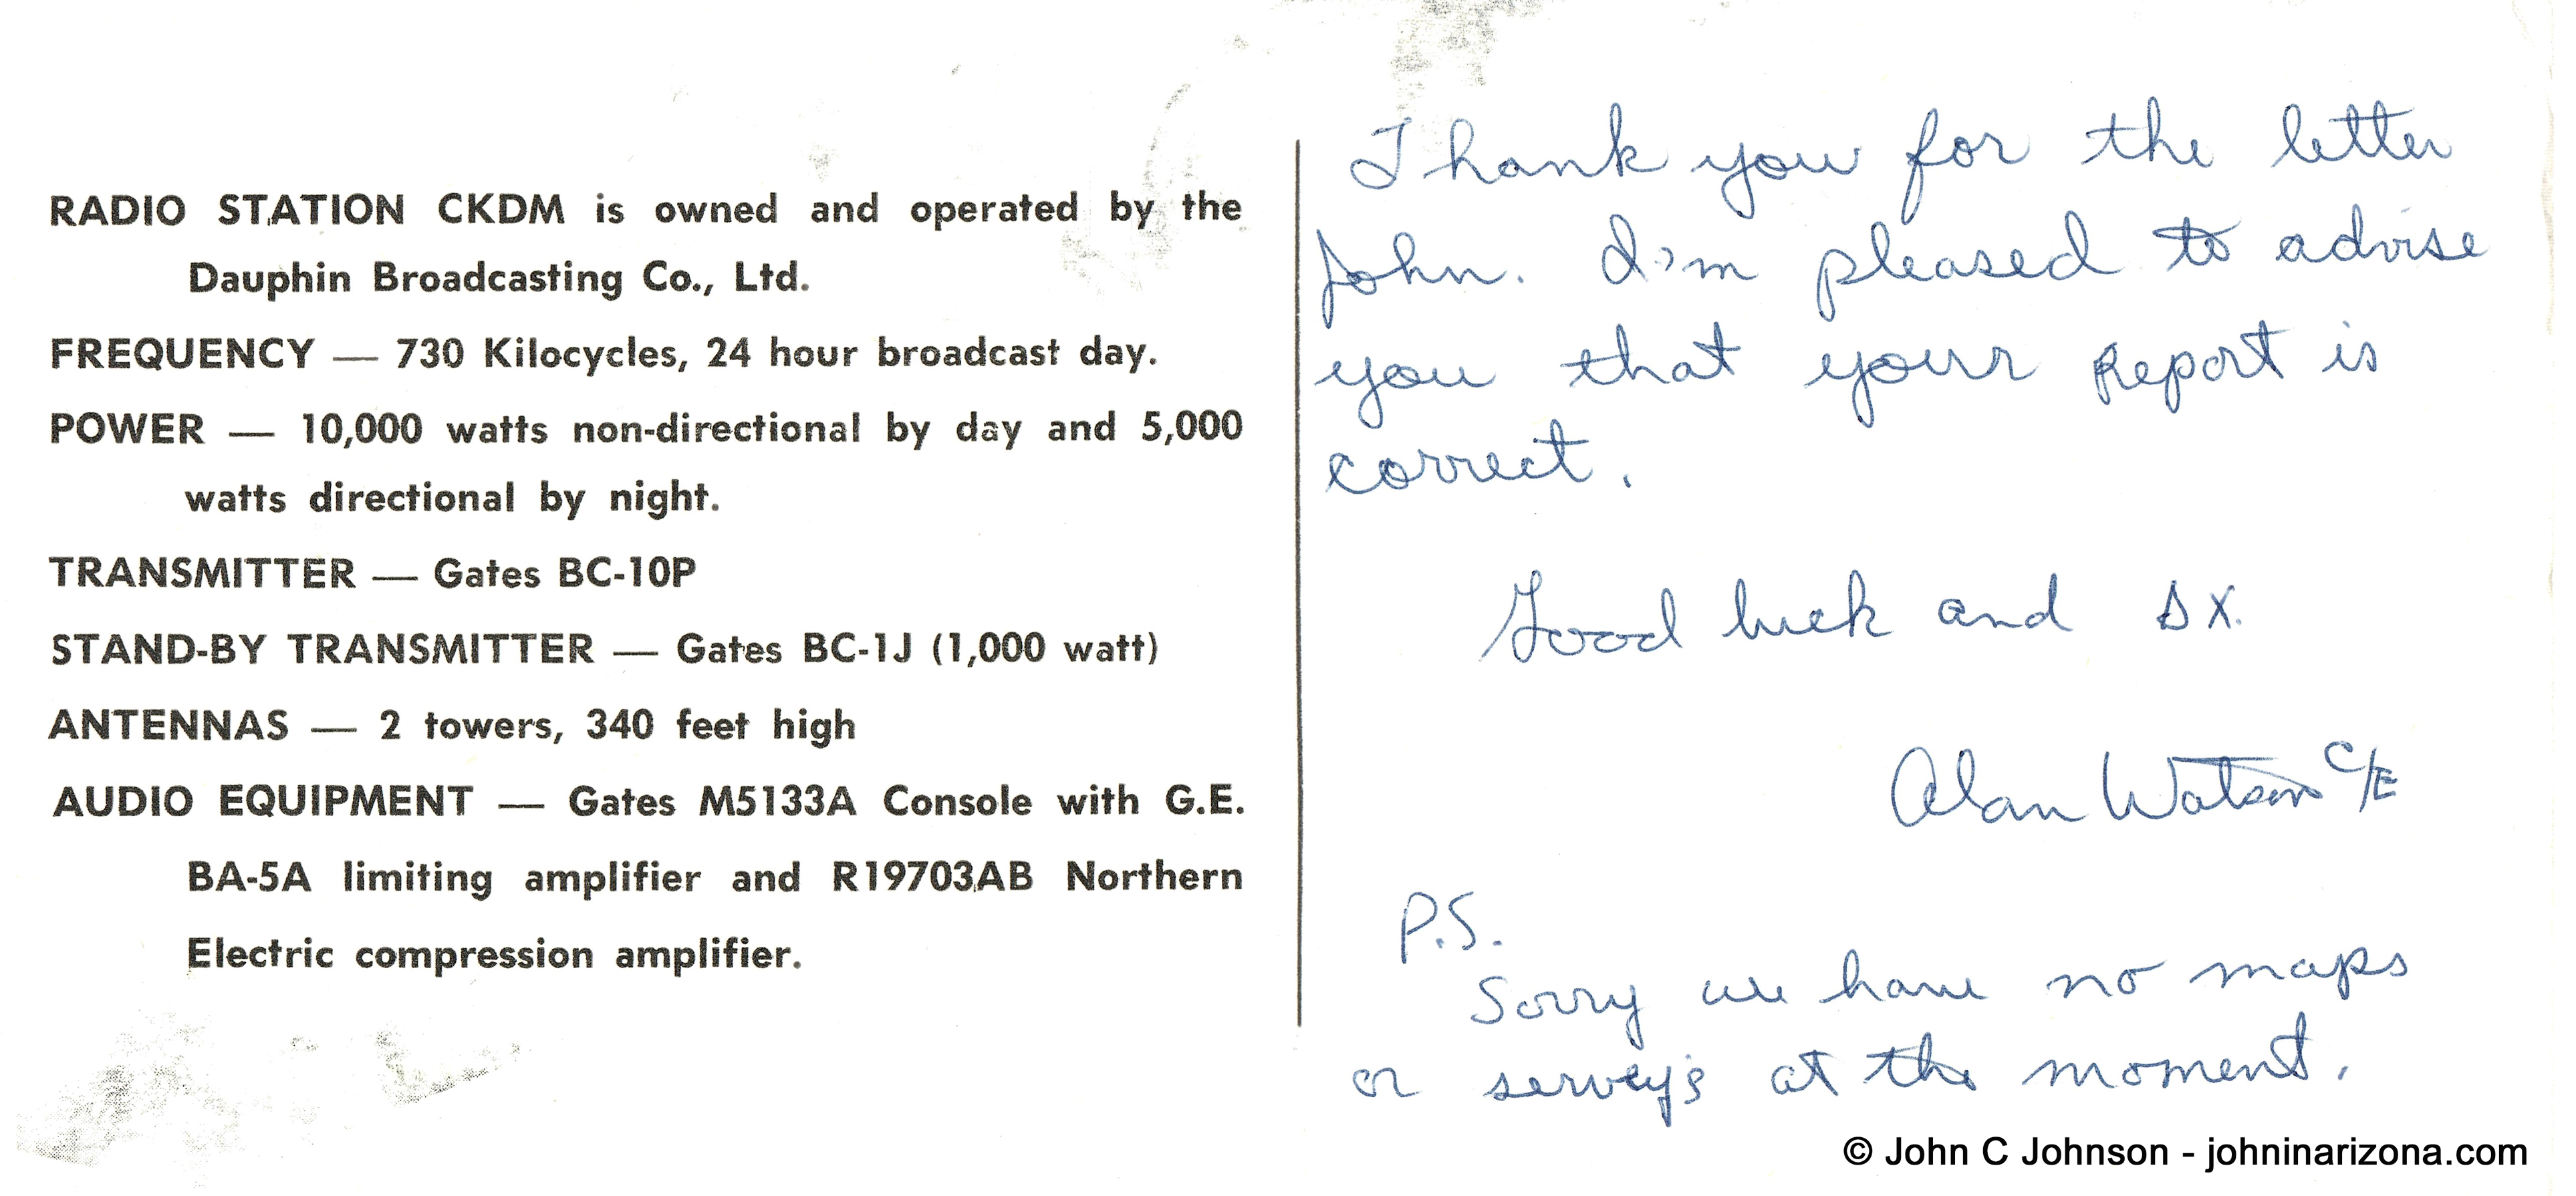 RADIO STATION CKDM is owned and operated by the
Dauphin Broadcasting Co., Ltd.
FREQUENCY — 730 Kilocycles, 24 hour broadcast day.
POWER — 10,000 watts non-directional by day and 5,000
watts directional by night.
TRANSMITTER — Gates BC-10P
STAND-BY TRANSMITTER — Gates BC-1J (1,000 watt)
ANTENNAS — 2 towers, 340 feet high
AUDIO EQUIPMENT — Gates M5133A Console with G.E.
BA-5A limiting amplifier and R19703AB Northern
Electric compression amplifier.
Thank you for the letter
John. I'm pleased to advise
you that your Report is
correct.
Good luck and DX.
Alan Watson C/E
P.S.
Sorry we have no maps
or servey's at the moment.
© John C Johnson - johninarizona.com